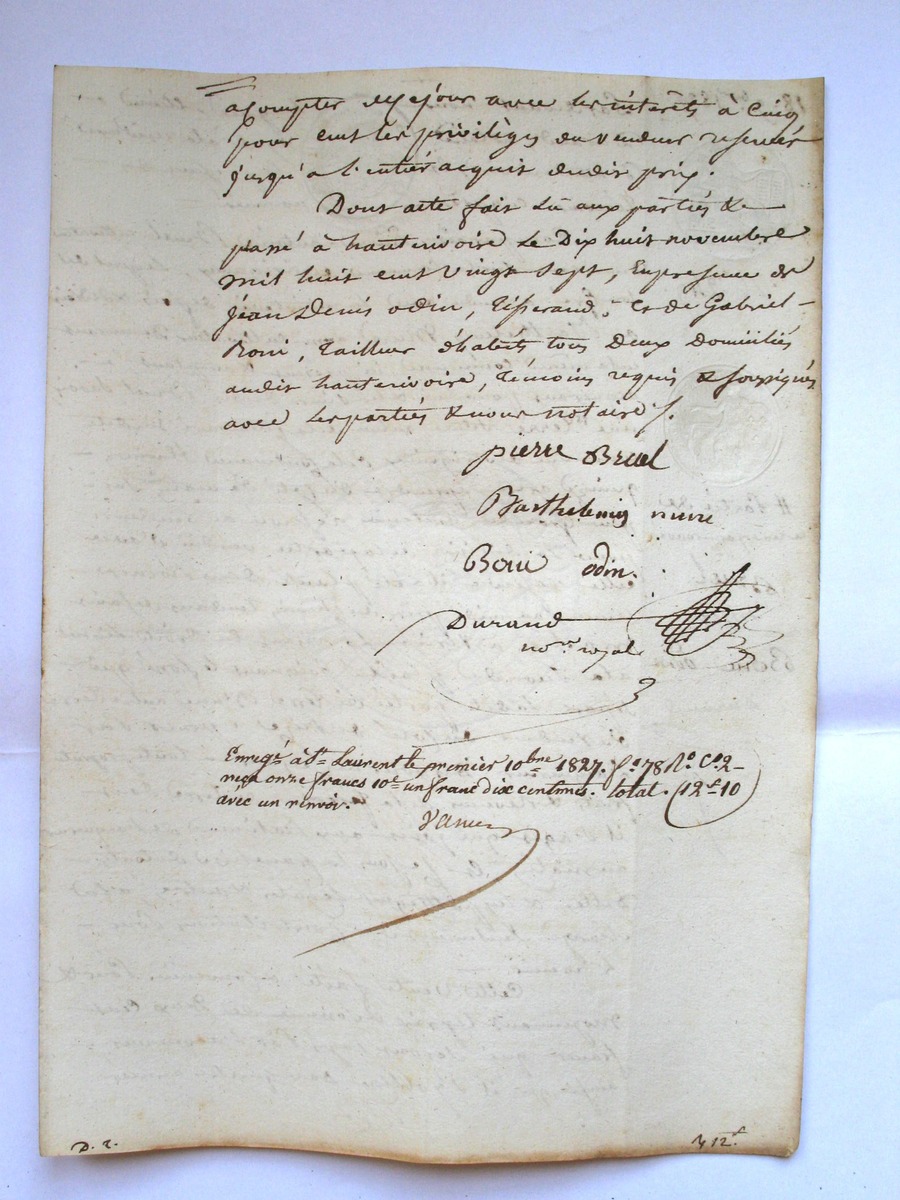 a Compter de ce jour avec les intérêts à Cinq
pour cent les privilèges du vendeur reservés
jusqu'a l'entier acquit dudit prix.
Dont acte fait Lu aux partiés &
passé à hauterivoire Le Dix huit novembre
mil huit cent vingt sept, En presence de
jean Denis odin, Tisserand, Et de Gabriel
Boni, Tailleur d'habits tous Deux domiciliés
audit hauterivoire, Témoins requis & soussignés
avec Les partiés & nous notaire /.
pierre Bruel
Barthelemy
Boni odin.
Durand
not.re royal
Enregé à St. Laurent le premier 10bre 1827. fo. 78 Ro. Ce. 2
reçu onze francs 10e un franc dix centimes. total. 12f. 10
avec un renvoi.
D. 2.
12f